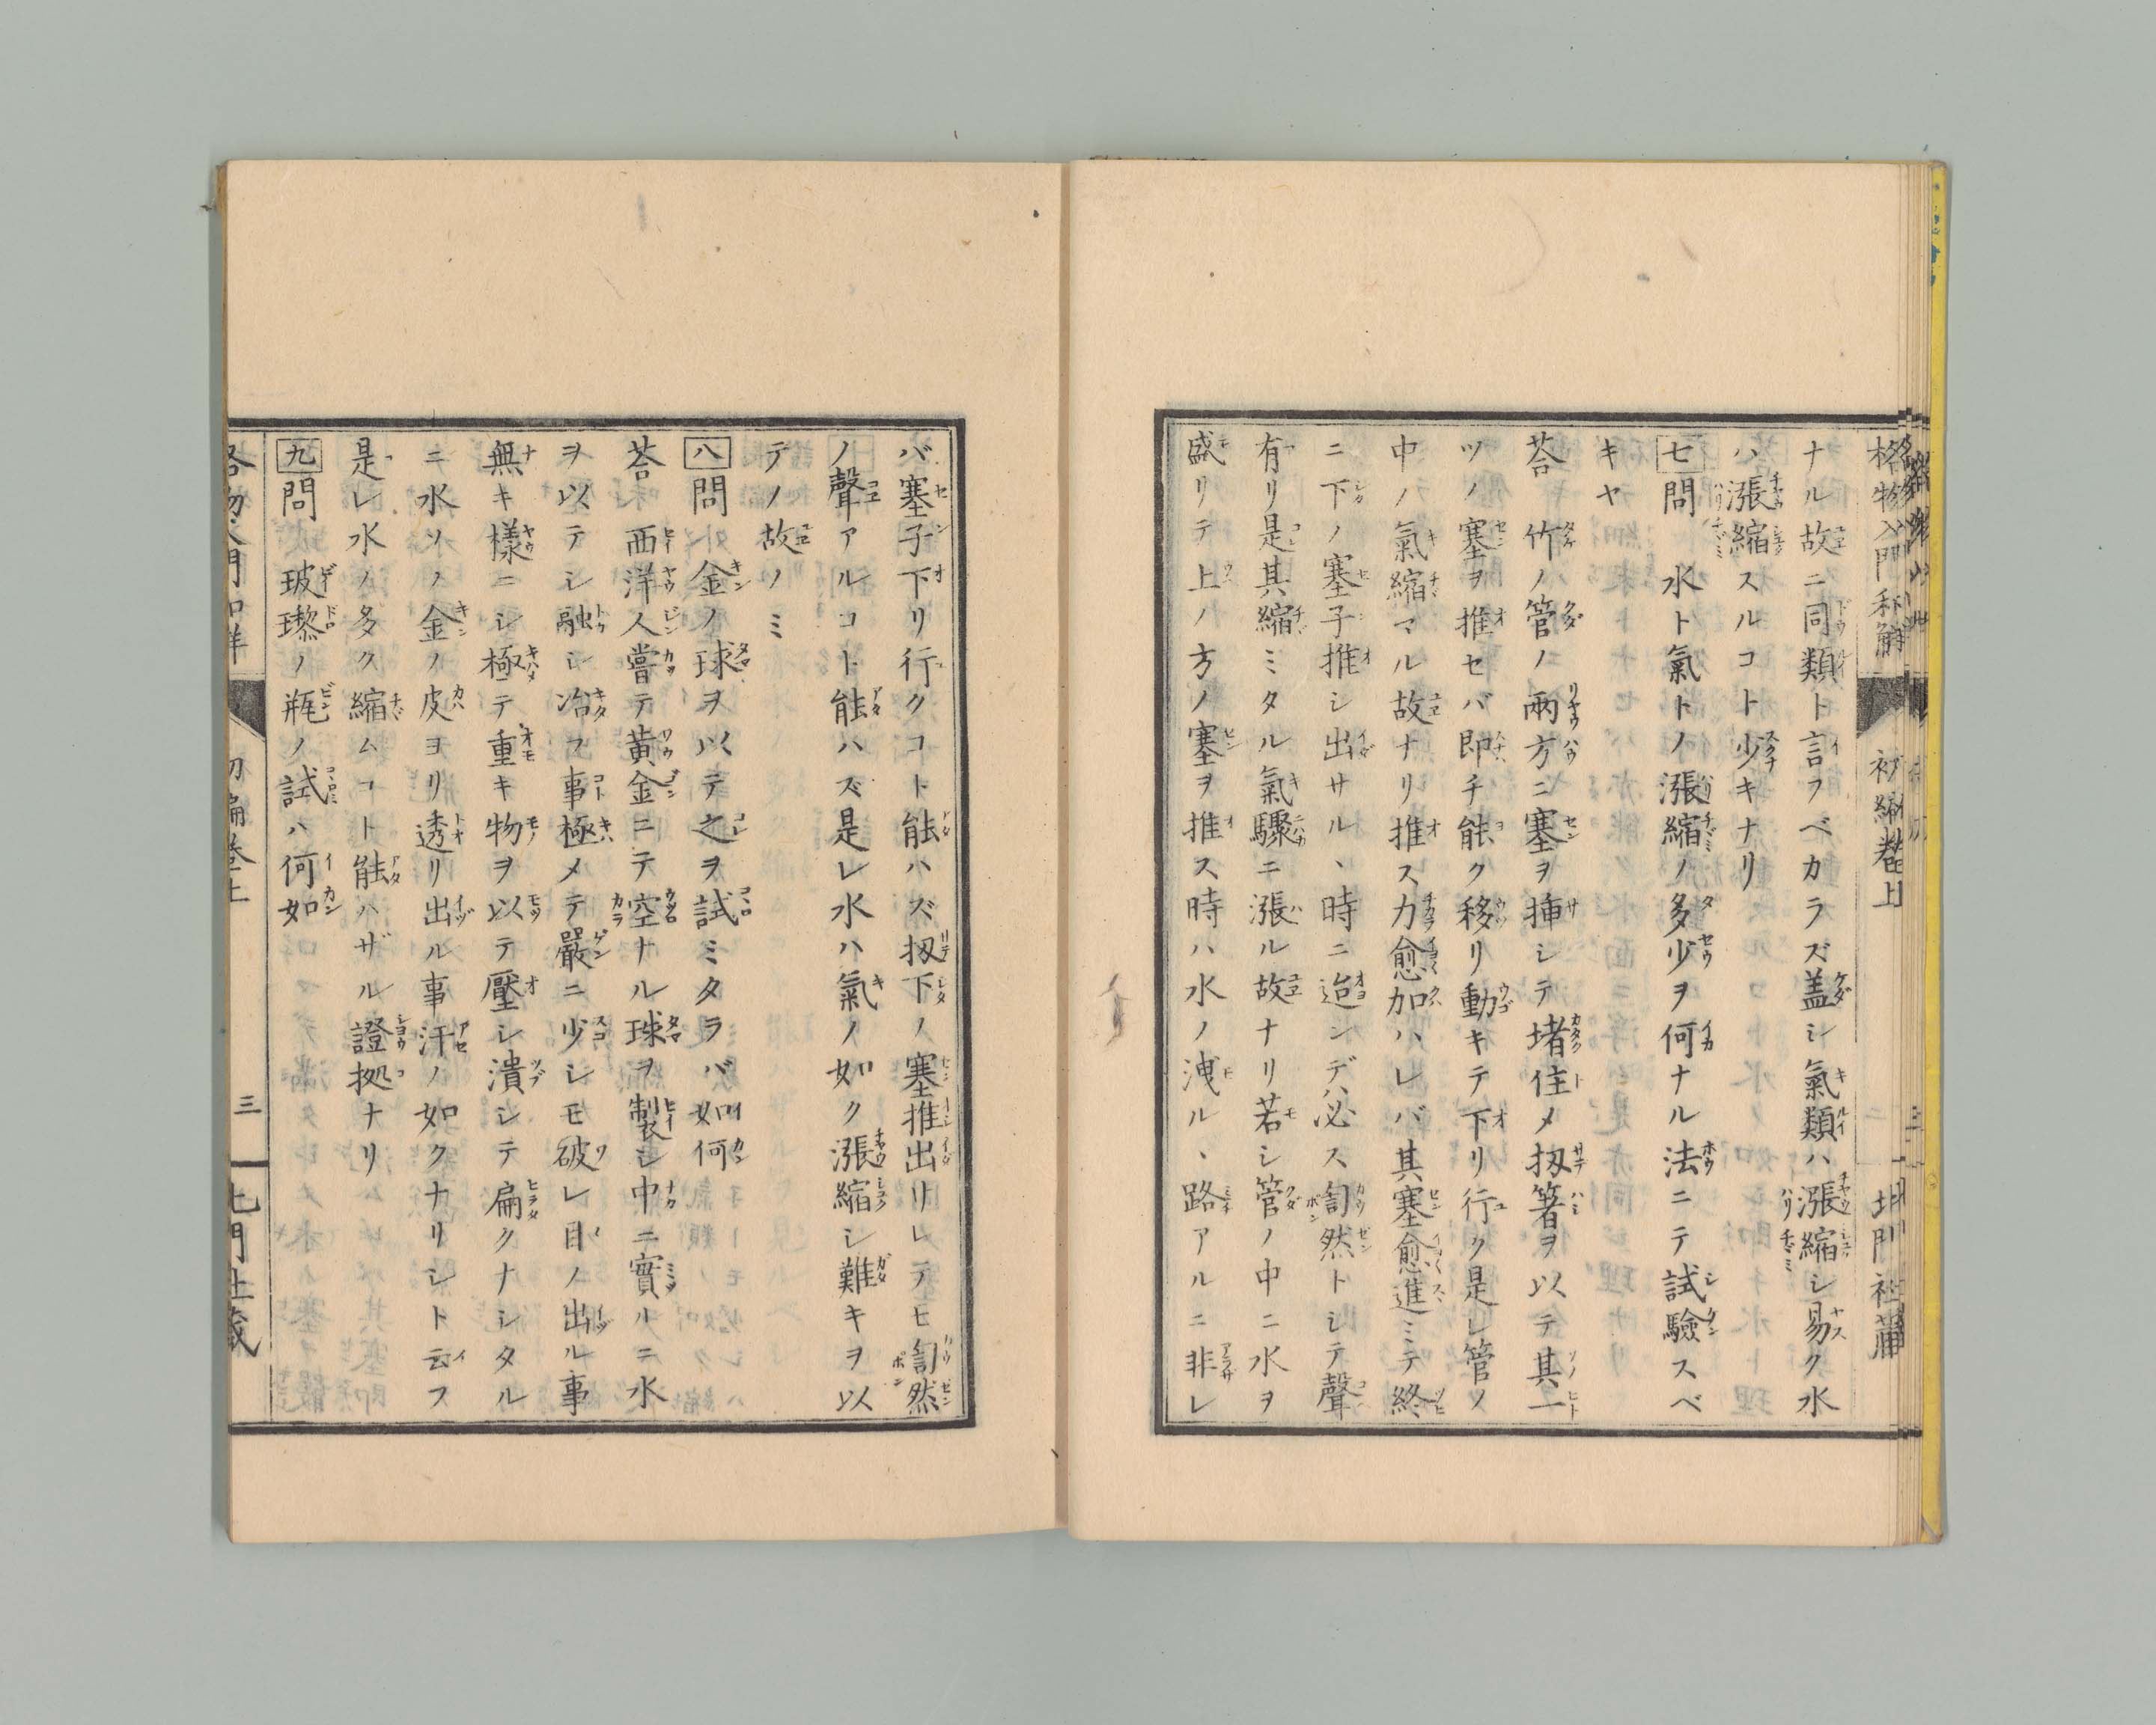 格物入門和解 初編卷上 北門社藏
ナル故ニ同類ト言フベカラズ盖シ氣類ハ漲縮シ易ク水
ハ漲縮スルコト少キナリ
七問 水ト氣トノ漲縮ノ多少ヲ何ナル法ニテ試驗スベ
キヤ
荅 竹ノ管ノ兩方ニ塞ヲ揷シテ堵住メ扨箸ヲ以テ其一
ツノ塞ヲ推セバ即チ能ク移リ動キテ下リ行ク是レ管ノ
中ノ氣縮マル故ナリ推ス力愈加ハレバ其塞愈進ミテ終
ニ下ノ塞子推シ出サルヽ時ニ迨ンデハ必ス訇然トシテ聲
有リ是其縮ミタル氣驟ニ漲ル故ナリ若シ管ノ中ニ水ヲ
盛リテ上ノ方ノ塞ヲ推ス時ハ水ノ洩ルヽ路アルニ非レ
バ塞子下リ行クコト能ハズ扨下ノ塞推出リレテモ訇然
ノ聲アルコト能ハズ是レ水ハ氣ノ如ク漲縮シ難キヲ以
テノ故ノミ
八問 金ノ球ヲ以テ之ヲ試ミタラバ如何
荅 西洋人嘗テ黃金ニテ空ナル球ヲ製シ中ニ實ルニ水
ヲ以テシ融シ冶フ事極メテ嚴ニ少シモ破レ目ノ出ル事
無キ樣ニシ極テ重キ物ヲ以テ壓シ潰シテ扁クナシタル
ニ水ソノ金ノ皮ヨリ透リ出ル事汗ノ如クナリシト云フ
是レ水ノ多ク縮ムコト能ハザル證拠ナリ
九問 玻瓈ノ瓶ノ試ハ何如
格物入門和解 初編卷上 三 北門社藏